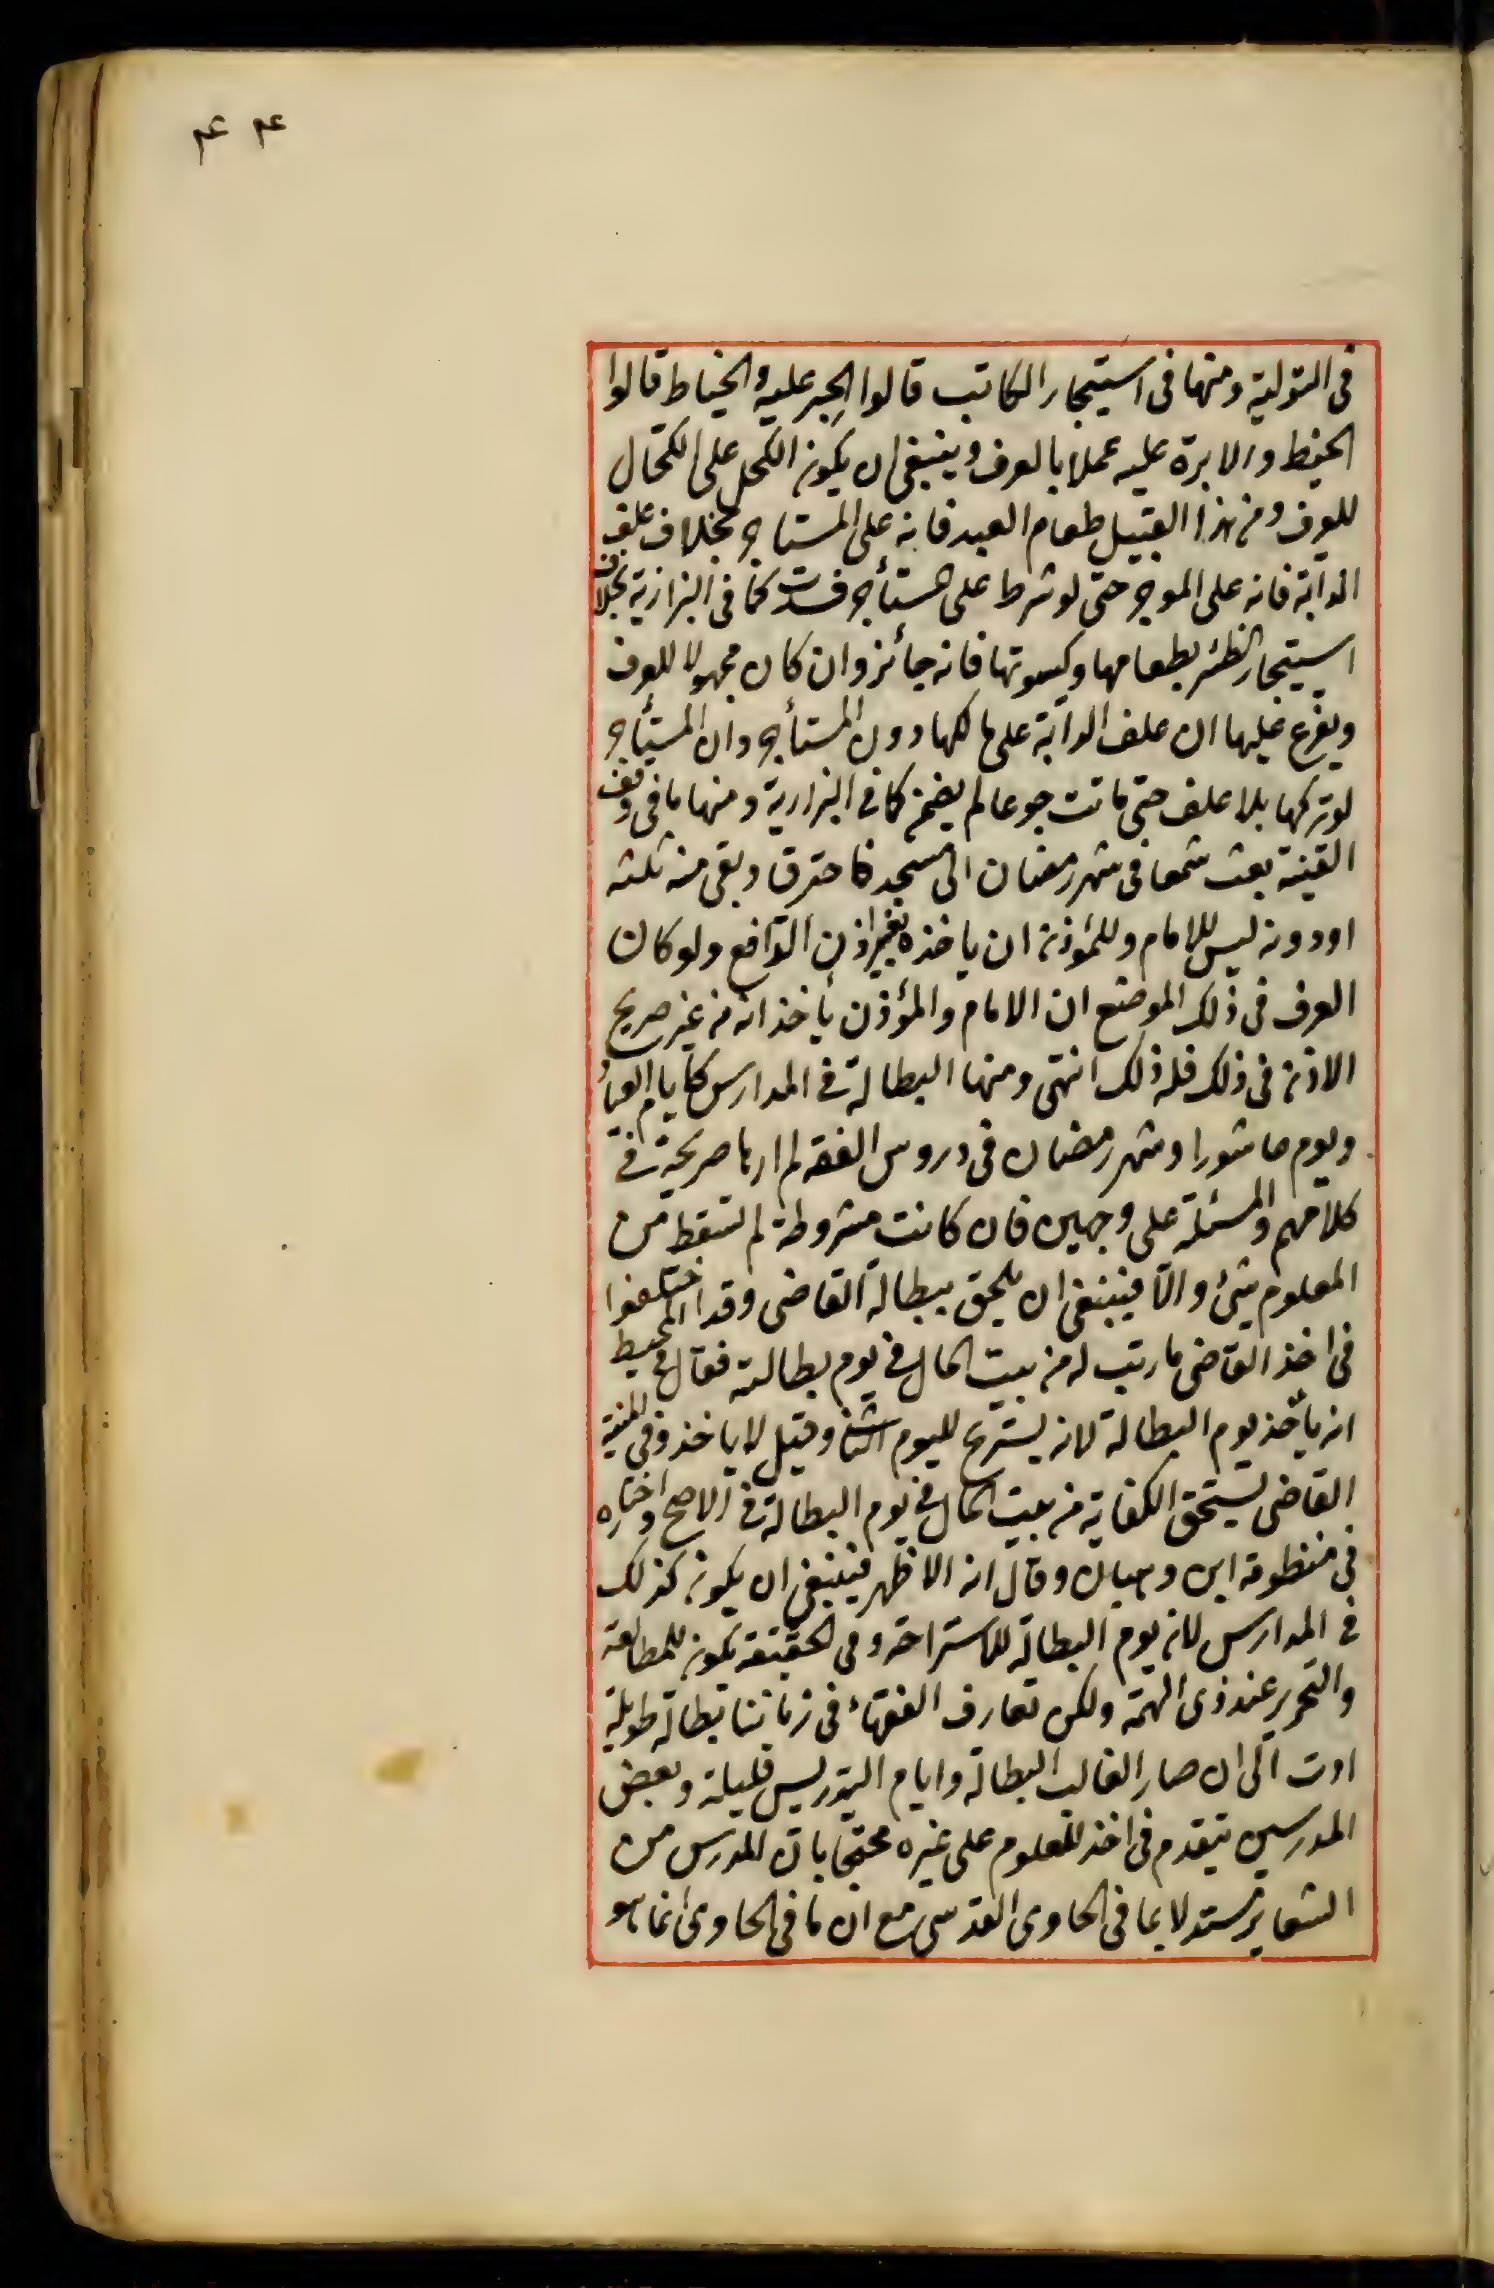 ۴۴
فى التولية ومنها فى استيجار الكاتب قالوا الحبر عليه والخياط قالوا
الخيط والابرة عليه عملا بالعرف وينبغى ان يكون الكحل على الكحال
للعرف ومن هذا القبيل طعام العبد فانه على المستاجر بخلاف علف
الدابة فانه على الموجر حتى لو شرط على المستأجر فسدت كما فى البزازية بخلاف
استيجار الظئر بطعامها وكسوتها فانه جائز وان كان مجهولا للعرف
ويفرع عليها ان علف الدابة على مالكها دون المستأجر وان المستأجر
لو تركها بلا علف حتى ماتت جوعا لم يضمن كما فى البزازية ومنها ما فى وقف
القنية بعث شمعا فى شهر رمضان الى مسجد فاحترق وبقى منه ثلثه
او دونه ليس للامام وللمؤذن ان ياخذه بغير اذن الدافع ولو كان
العرف فى ذلك الموضع ان الامام والمؤذن يأخذانه من غير صريح
الاذن فى ذلك فله ذلك انتهى ومنها البطالة فى المدارس كايام العيد
ويوم عاشورا وشهر رمضان فى دروس الفقه لم ارها صريحة فى
كلامهم والمسئلة على وجهين فان كانت مشروطة لم تسقط من
المعلوم شئ والا فينبغى ان يلحق ببطالة القاضى وقد اختلفوا
فى اخذ القاضى ما رتب له من بيت المال فى يوم بطالته فقال فى المحيط
انه يأخذ يوم البطالة لانه يستريح لليوم الثانى وقيل لا ياخذ وفى المنية
القاضى يستحق الكفاية من بيت المال فى يوم البطالة فى الاصح واختاره
فى منظومة ابن وهبان وقال انه الاظهر فينبغى ان يكون كذلك
فى المدارس لان يوم البطالة للاستراحة وفى الحقيقة يكون للمطالعة
والتحرير عند ذى الهمة ولكن تعارف الفقهاء فى زماننا بطالة طويلة
ادت الى ان صار الغالب البطالة وايام التدريس قليلة وبعض
المدرسين يتقدم فى اخذ المعلوم على غيره محتجا بان المدرس من
الشعاير مستدلا بما فى الحاوى القدسى مع ان ما فى الحاوى انما هو